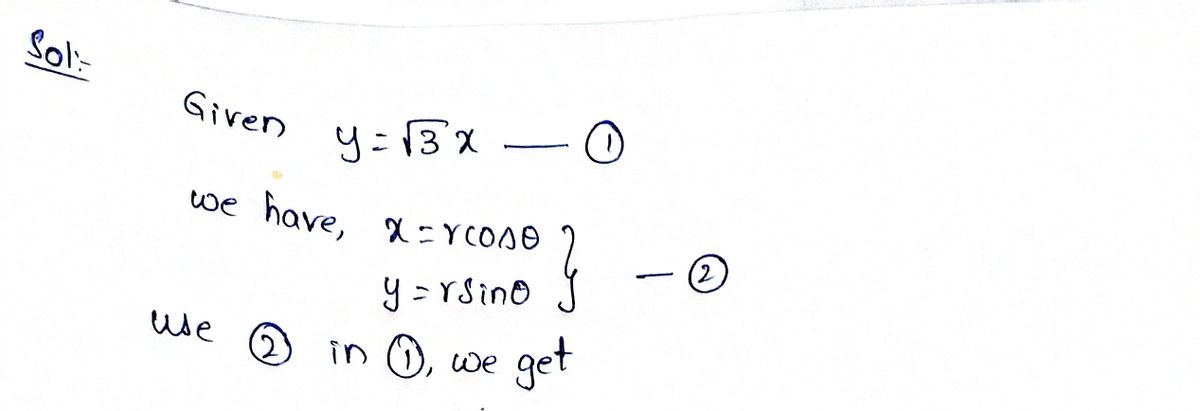 Sol:-
Given y = √3 x — ①
we have, x = r cosθ
y = r sinθ } — ②
use ② in ①, we get